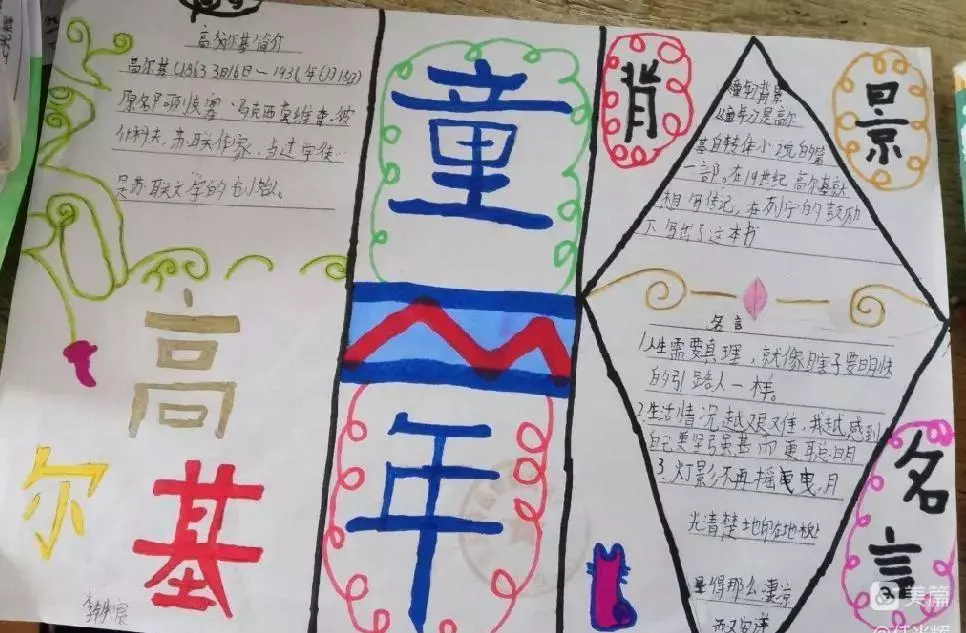 高尔基简介
高尔基(1863 3月16日～1936年6月18日)
原名阿列克塞·马克西莫维奇·彼
什科夫，苏联作家，当过学徒
是苏联文学的创始。
高
尔
基
童
年
背
景
童年背景
《童年》是高尔
基自转体小说的第
一部。在19世纪高尔基就
想写传记，在列宁的鼓励
下写出了这本书
名言
1人生需要真理，就像瞎子要明快
的引路人一样。
2.生活情况越艰难，我越感到
自己更坚强甚而更聪明
3.灯影不再摇曳曳，月
光清楚地印在地板
显得那么凄凉
而又安详
名
言
美篇